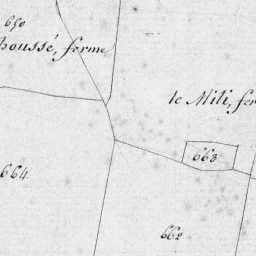 650
houssé, ferme
le Mili, fer
663
664
662